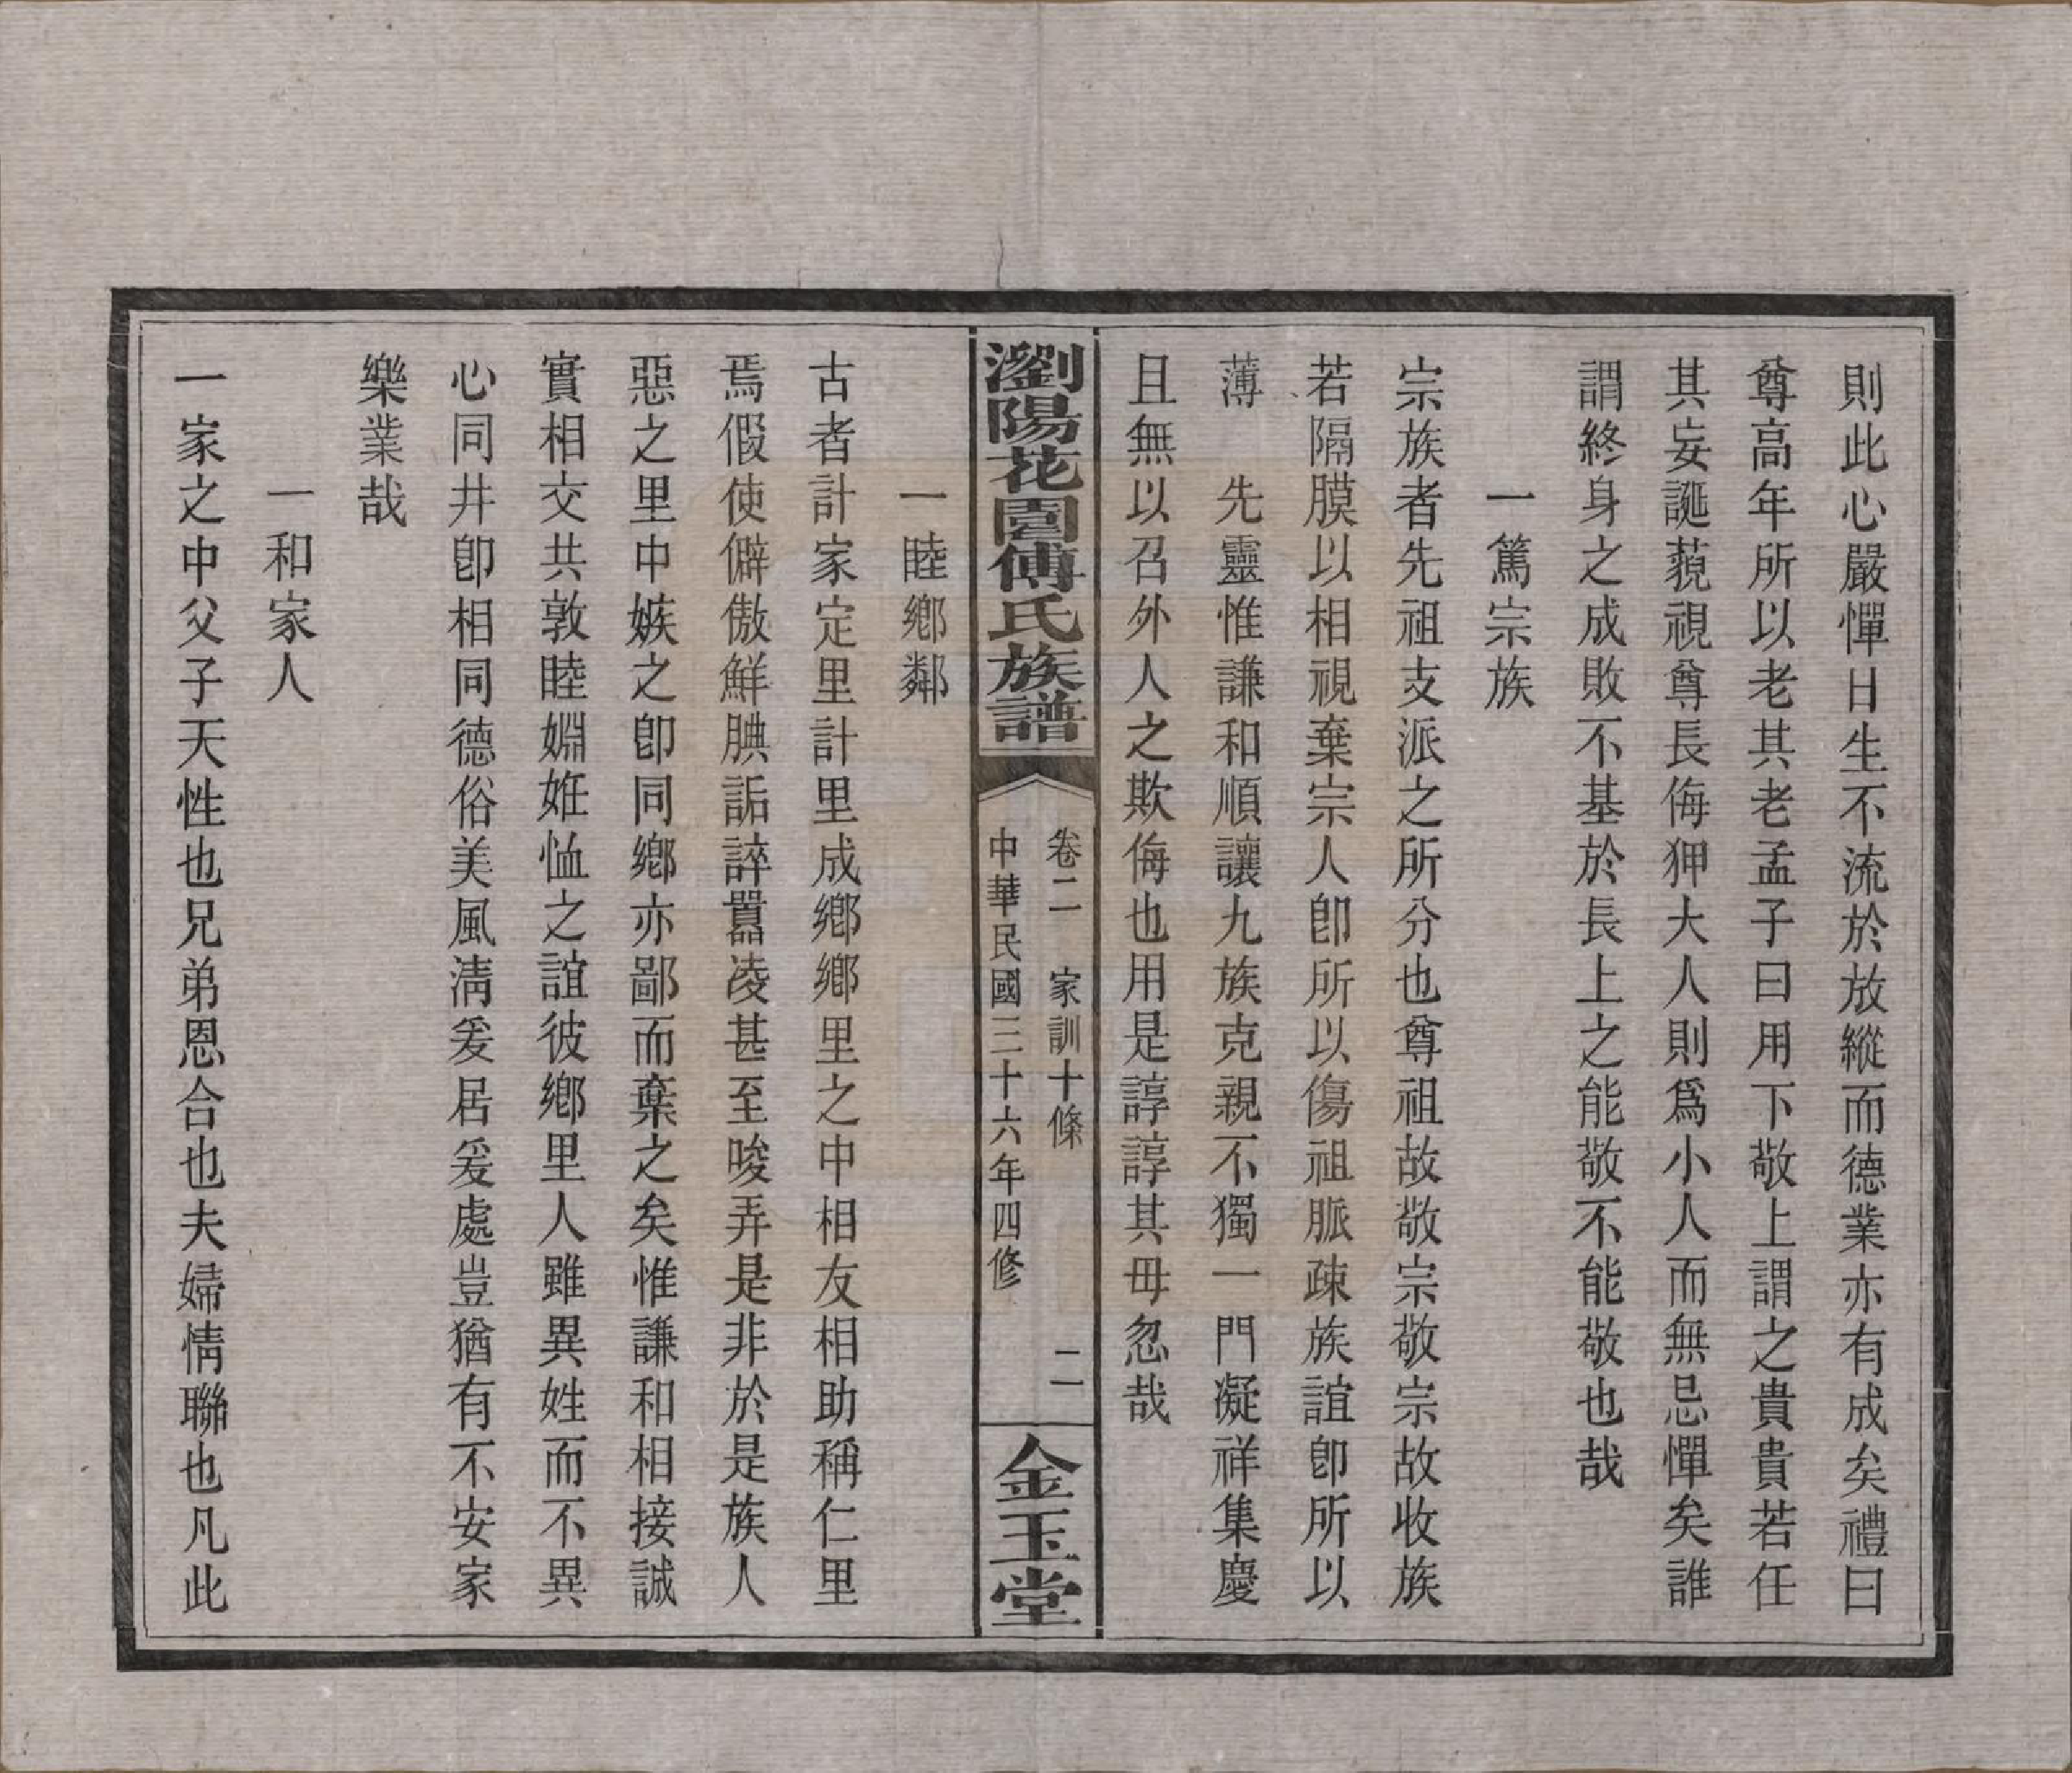 則此心嚴憚日生不流於放縱而德業亦有成矣禮曰
尊高年所以老其老孟子曰用下敬上謂之貴貴若任
其妄誕藐視尊長侮狎大人則爲小人而無忌憚矣誰
謂終身之成敗不基於長上之能敬不能敬也哉
一篤宗族
宗族者先祖支派之所分也尊祖故敬宗敬宗故收族
若隔膜以相視棄宗人卽所以傷祖脈疎族誼卽所以
薄　先靈惟謙和順讓九族克親不獨一門凝祥集慶
且無以召外人之欺侮也用是諄諄其毋忽哉
瀏陽花園傅氏族譜
卷二　家訓十條　二
中華民國三十六年四修
金玉堂
一睦鄉鄰
古者計家定里計里成鄉鄉里之中相友相助稱仁里
焉假使僻傲鮮腆詬誶囂凌甚至唆弄是非於是族人
惡之里中嫉之卽同鄉亦鄙而棄之矣惟謙和相接誠
實相交共敦睦婣姙恤之誼彼鄉里人雖異姓而不異
心同井卽相同德俗美風淸爰居爰處豈猶有不安家
樂業哉
一和家人
一家之中父子天性也兄弟恩合也夫婦情聯也凡此